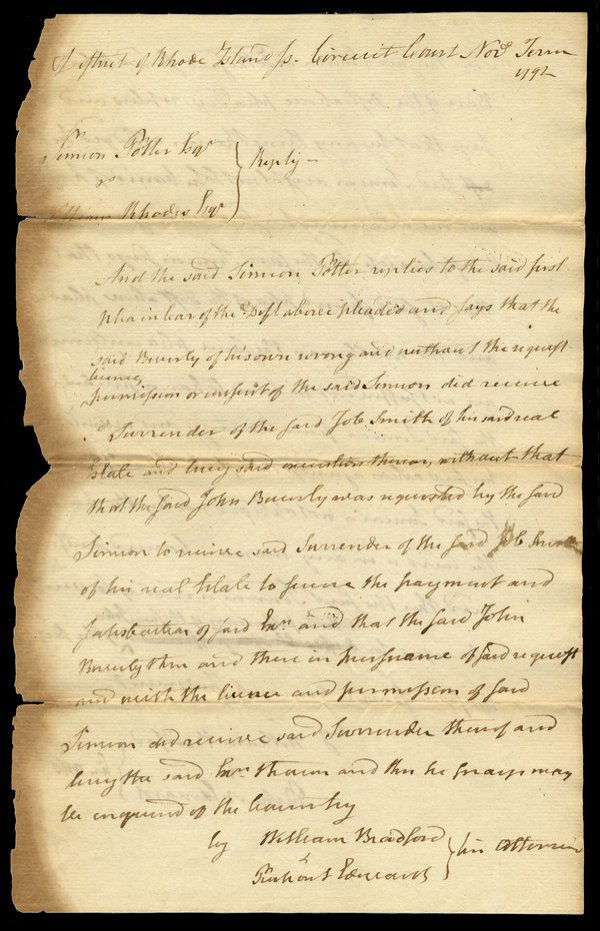 District of Rhode Island ss. Circuit Court Nov.r Term
1792
Simeon Potter Esqr
vs
William Rhodes Esqr
Reply—
And the said Simeon Potter replies to the said first
plea in bar of the Deft above pleaded and says that the
said Beverly of his own wrong and without the request
licence,
permission or consent of the said Simeon did receive
a Surrender of the said Job Smith of his said real
Estate and levy said execution thereon, without that
that the said John Beverly was requested by the said
Simeon to receive said Surrender of the said Job Smith
of his real Estate to secure the payment and
satisfaction of said Exn and that the said John
Beverly then and there in pursuance of said request
and with the licence and permission of said
Simeon did receive said Surrender thereof and
levy the said Exn thereon and this he prays may
be enquired of the Country
by William Bradford
Edwards
his attornies